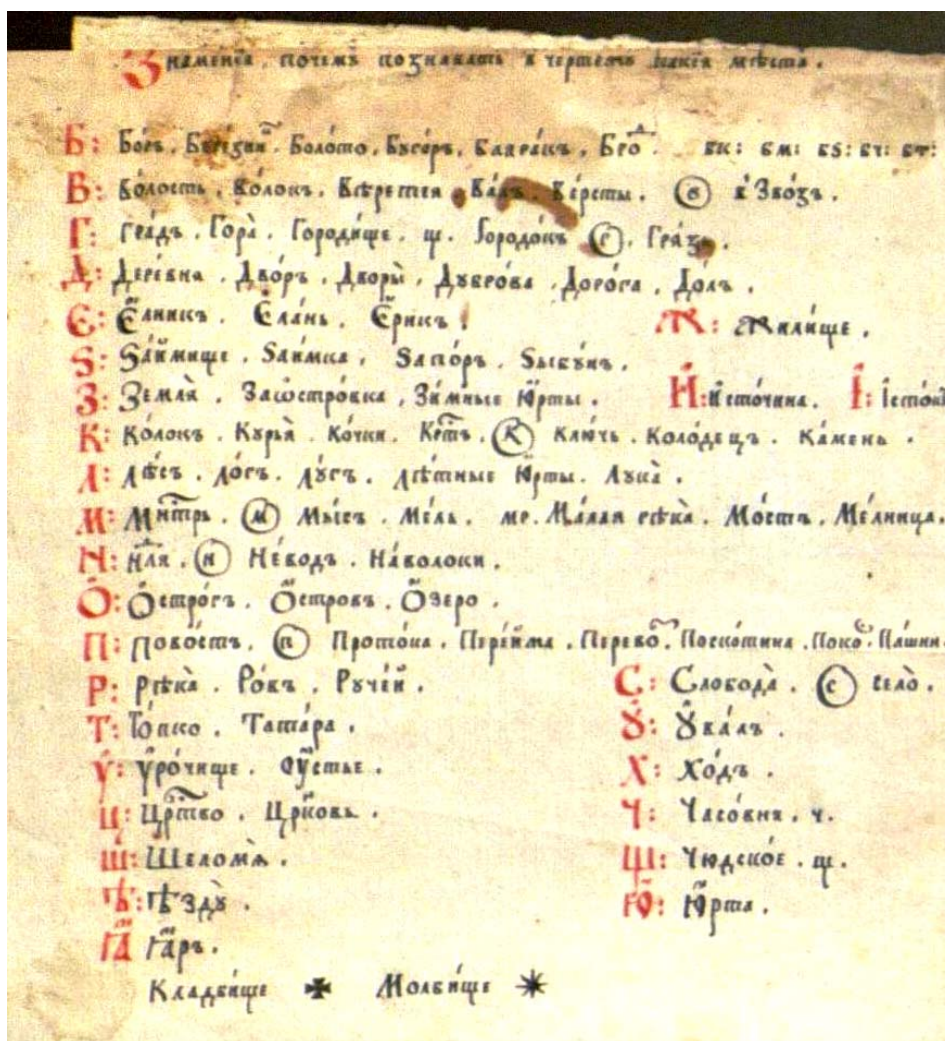 Знаменіѧ . почемꙋ познавать в чертежѣ какіѧ мѣста .
Б: Бо́ръ . Болото , Бꙋго́ръ , Баира́къ , Бро бк: бм: бѕ: бч: бт:
В: Во́лость , Во́локъ , Ве́ретеѧ . Ва́лъ . Ве́рсты . в в̾Зво́зъ .
Г: гра́дъ . Гора̀ . Городи́ще . щ . Городо́къ г . Грѧ́зь .
Д: Дере́внѧ . Дво́ръ . Дворы̀ , Дꙋбро́ва . Доро́га . До́лъ .
Є: Є҆́лникъ . Є҆ла́нь . Є҆́рикъ . Ж: Жили́ще .
Ѕ: Ѕа́имище . Ѕаи́мка . Ѕапо́ръ . Ѕыбꙋ́нъ .
З: Землѧ̀ . Заѡстро́вка . Зи́мные Ю҆́рты . И҆: И҆сто́чина . І҆:
К: Ко́локъ . Кꙋрьѧ̀ . Ко́чки . Крⷭ҇тъ . К Клю́чь . Коло́дещъ . Ка́мень .
Л: Лѣ́съ . Ло́гъ . Лꙋ́гъ . Лѣ́тные Ю҆́рты . Лꙋка̀ .
М: Мнⷭ҇трь . м Мы́съ . Ме́ль . мр . Ма́лаѧ рѣка . Мо́стъ . Ме́лница .
Н: н Не́водъ . На́волоки .
О҆: О҆стро́гъ . О҆́стровъ . О҆́зеро .
П: Пого́стъ . п Прото́ка . Пере́йма . Перево́ . Поско́тина . Поко́ . Па́шни
Р: Рѣка̀ . Ро́въ . Рꙋче́й . С: Слобода̀ . с село̀ .
Т: То́пко . Тата́ра . Ꙋ҆: Ꙋ҆ва́лъ .
У҆: У҆ро́чище . Оу҆́стье . Х: Хо́дъ .
Ц: Црⷭ҇тво . Црковь . Ч: Часо́внѧ . ч .
Ш: Шеломѧ̀ . Щ: Чюдско́е . щ .
Ѣ: Ѣздꙋ̀ . Ю҆: Ю҆́рта .
Ꙗ҆ Ꙗ҆́ръ .
Кла́дбище ✠ Молби́ще ✴